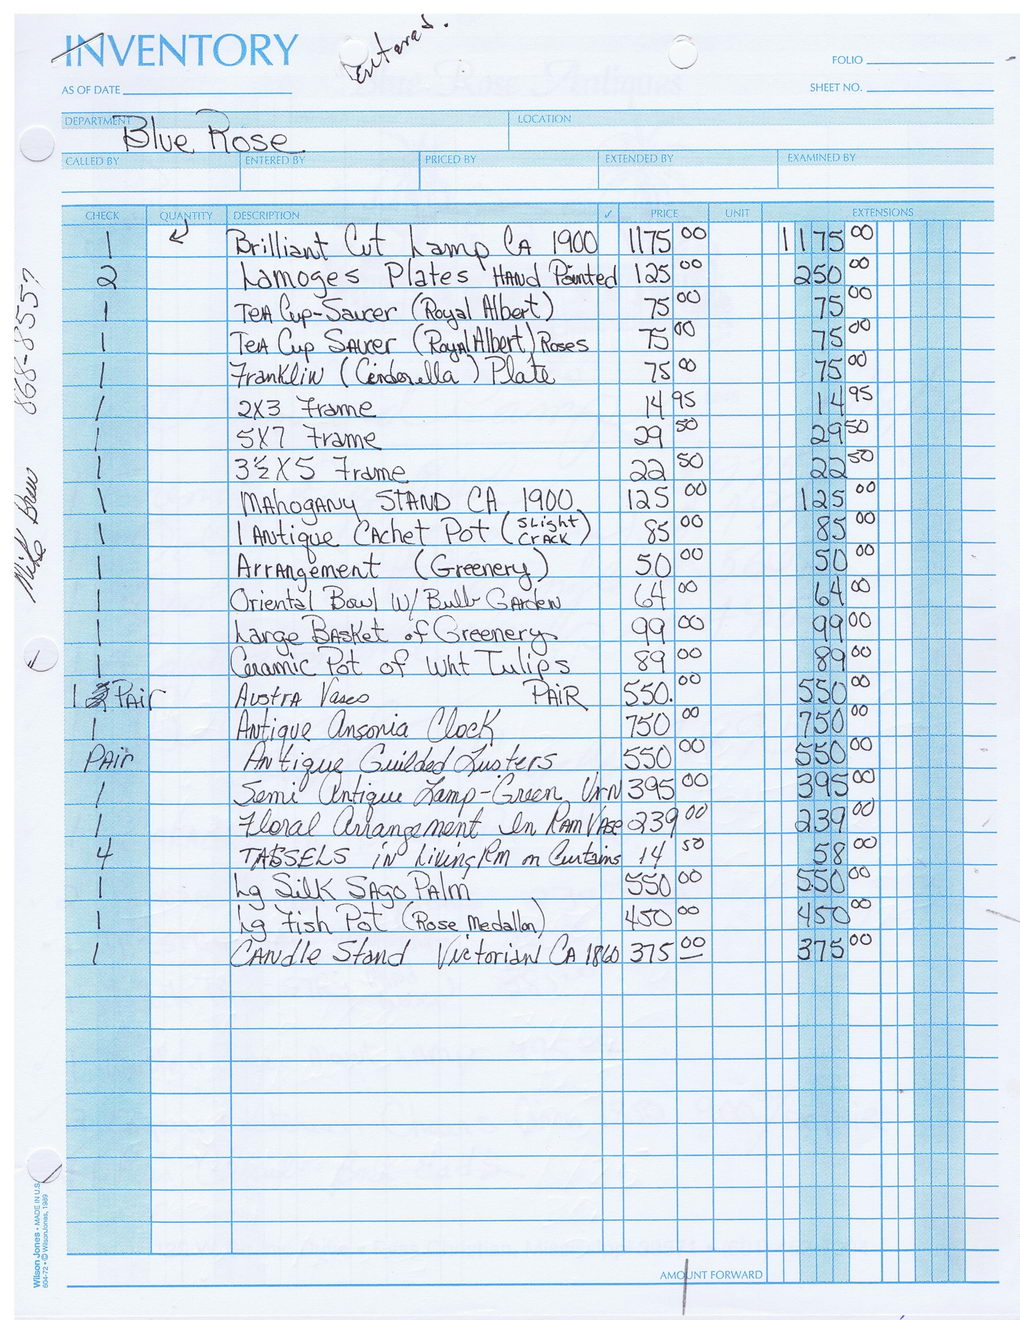 INVENTORY
Entered.
FOLIO
AS OF DATE
SHEET NO.
DEPARTMENT
Blue Rose
LOCATION
CALLED BY ENTERED BY PRICED BY EXTENDED BY EXAMINED BY
CHECK QUANTITY DESCRIPTION ✓ PRICE UNIT EXTENSIONS
1 Brilliant Cut Lamp CA 1900 1175 00 1175 00
2 Lamoges Plates HAND Painted 125 00 250 00
1 TEA Cup-Saucer (Royal Albert) 75 00 75 00
1 TEA Cup SAucer (Royal Albert) Roses 75 00 75 00
1 Franklin (Cinderella) Plate 75 00 75 00
1 2X3 Frame 14 95 14 95
1 5X7 Frame 29 50 29 50
1 3½X5 Frame 22 50 22 50
1 MAHOGANY STAND CA 1900 125 00 125 00
1 1 Antique CAchet Pot (Slight CrAck) 85 00 85 00
1 ArrAngement (Greenery) 50 00 50 00
1 Oriental Bowl W/ Bulb GArden 64 00 64 00
1 Large BAsket of Greenery 99 00 99 00
1 Ceramic Pot of Wht Tulips 89 00 89 00
1 PAir AustrA Vases PAIR 550. 00 550 00
1 Antique Ansonia Clock 750 00 750 00
PAir Antique Guilded Lusters 550 00 550 00
1 Semi Antique Lamp-Green Urn 395 00 395 00
1 Floral Arrangement In RAm VAse 239 00 239 00
4 TASSELS in LivingRm on Curtains 14 50 58 00
1 Lg Silk SAgo PAlm 550 00 550 00
1 Lg Fish Pot (Rose Medallon) 450 00 450 00
1 CANdle Stand Victorian CA 1860 375 00 375 00
AMOUNT FORWARD
868-8557
Wilson Jones • MADE IN U.S.A.